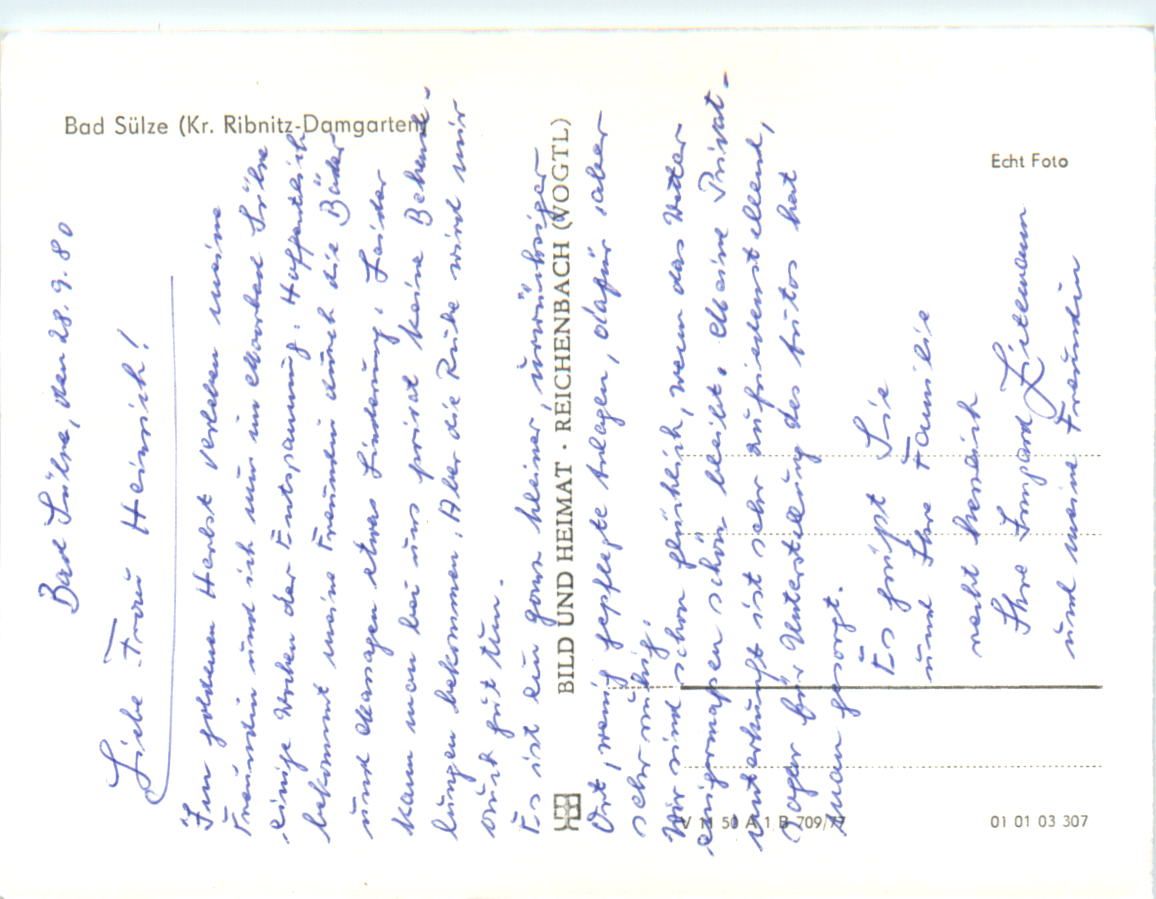 Bad Sülze (Kr. Ribnitz-Damgarten)
Echt Foto
BILD UND HEIMAT · REICHENBACH (VOGTL)
V 11 50 A 1 B 709/77
01 01 03 307
Bad Sülze, den 28.9.80
Liebe Frau Heinrich!
Im goldenen Herbst verleben meine
Freundin und ich nun im Moorbad Sülze
einige Wochen der Entspannung. Hoffentlich
bekommt meine Freundin durch die Bäder
und Massagen etwas Linderung. Leider
kann man bei uns privat keine Behand-
lungen bekommen. Aber die Ruhe wird mir
auch gut tun.
Es ist ein ganz kleiner, urwüchsiger
Ort, wenig gepflegte Anlagen, dafür aber
sehr ruhig.
Wir sind schon glücklich, wenn das Wetter
einigermaßen schön bleibt. Meine Privat-
unterkunft ist sehr zufriedenstellend,
sogar für Unterstellung des Autos hat
man gesorgt.
Es grüßt Sie
und Ihre Familie
recht herzlich
Ihre Irmgard
und meine Freundin